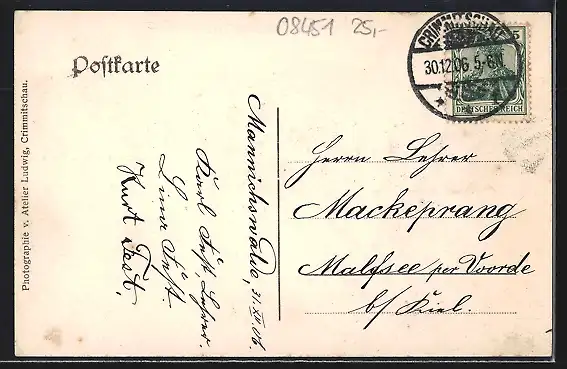 08451 25,-
Postkarte
CRIMMITSCHAU
30.12.06. 5-6N.
5
DEUTSCHES REICH
Photographie v. Atelier Ludwig, Crimmitschau.
Mannichswalde, 31. XII. 06.
Karl Fest, Lehrer.
Lina Fest.
Kurt Fest.
Herrn Lehrer
Mackeprang
Molfsee per Voorde
b/ Kiel.